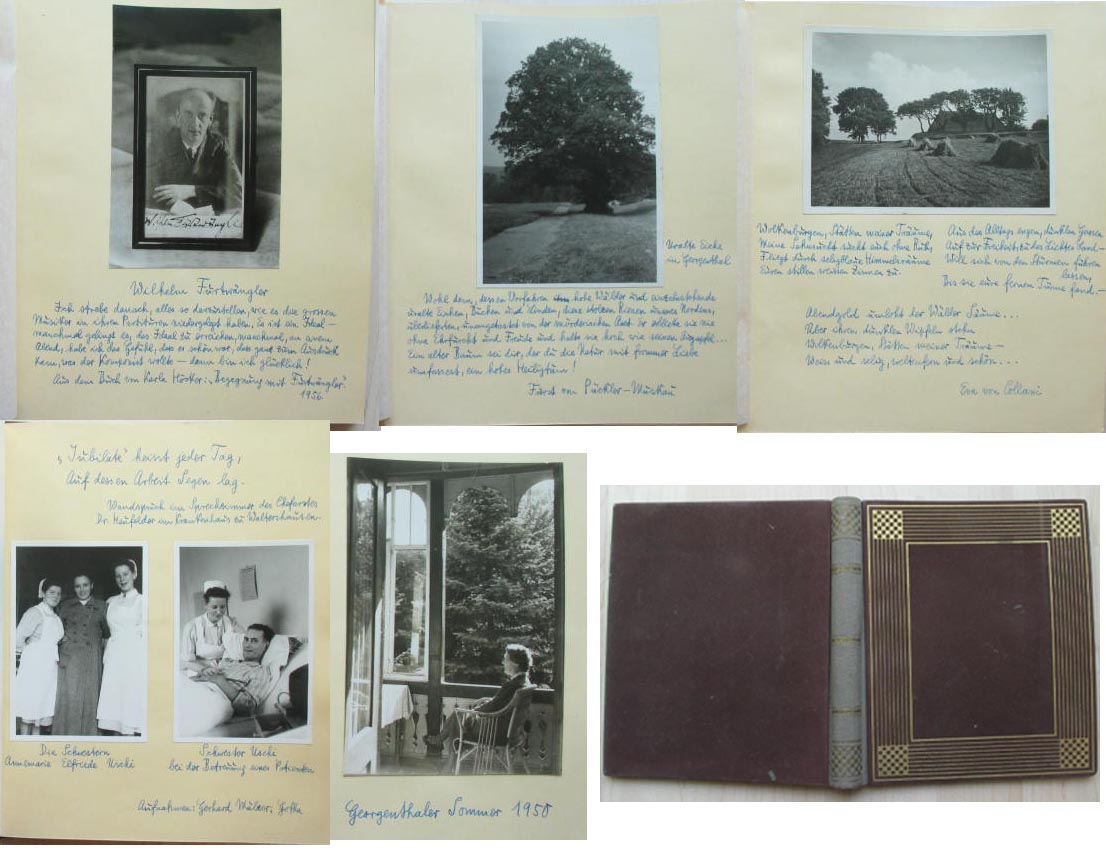 Wilhelm Furtwängler
Ich strebe danach, alles so darzustellen, wie es die grossen
Musiker in ihren Partituren niedergelegt haben, es ist ein Ideal -
manchmal gelingt es, das Ideal zu erreichen, manchmal, an einem
Abend, habe ich das Gefühl, das es schön war, das ganz zum Ausdruck
kam, was der Komponist wollte - dann bin ich glücklich!
Aus dem Buch von Karla Höcker: „Begegnung mit Furtwängler"
1956.
Uralte Eiche
in Georgenthal
Wohl dem, dessen Vorfahren hohe Wälder und einzelnstehende
uralte Eichen, Buchen und Linden, diese stolzen Riesen unseres Nordens,
überlieferten, unangetastet von der mörderischen Axt. Er erblicke sie nie
ohne Ehrfurcht und Freude und halte sie hoch wie seinen
Ein alter Baum sei dir, der du die Natur mit frommer Liebe
umfassest, ein hohes Heiligtum!
Fürst von Pückler-Muskau
Wolkenburgen, Stätten meiner Träume,
Meine Sehnsucht sucht euch ohne Ruh,
Fliegt durch seligblaue Himmelsräume
Euren stillen weissen Zinnen zu.
Aus des Alltags engen, dunklen Gassen
Auf zur Freiheit, zu des Lichtes Land -
Will sich von den Stürmen führen
lassen,
Bis sie eure fernen Türme fand. -
Abendgold umloht der Wälder Säume...
Über ihren dunklen Wipfeln stehn
Wolkenburgen, Stätten meiner Träume -
Weiss und selig, weltenfern und schön...
Eva von Collani
„Jubilate" heisst jeder Tag,
Auf dessen Arbeit Segen lag.
Wandspruch im Sprechzimmer des Chefarztes
Dr. Heufelder im Krankenhaus zu Waltershausen.
Die Schwestern
Annemarie Elfriede Uschi
Schwester Uschi
bei der Betreuung eines Patienten
Aufnahmen: Gerhard Gotha
Georgenthaler Sommer 1950